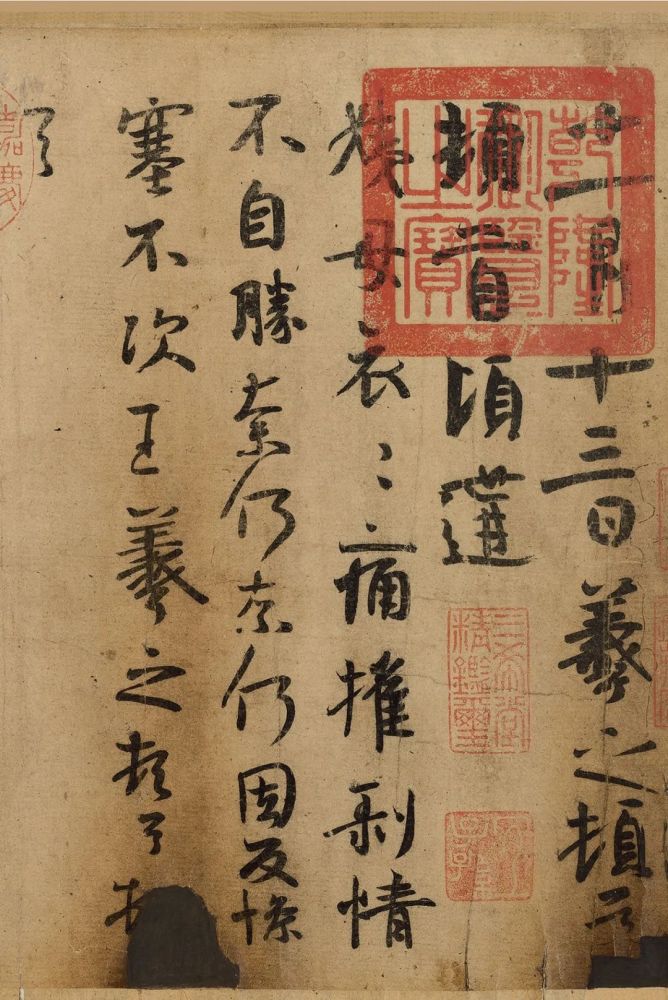 十一月十三日羲之頓首
頓首頃遘
姨母哀〻痛摧剝情
不自勝奈何奈何因反慘
塞不次王羲之頓首
首
乾隆
御覽
之寶
三希堂
精鑑璽
嘉慶